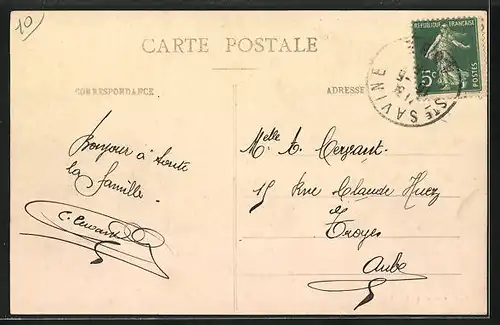 10
CARTE POSTALE
RÉPUBLIQUE FRANÇAISE
5c
POSTES
STE SAVINE
CORRESPONDANCE
ADRESSE
Bonjour à toute
la famille
Melle
15 Rue Claude Huez
Troyes
Aube